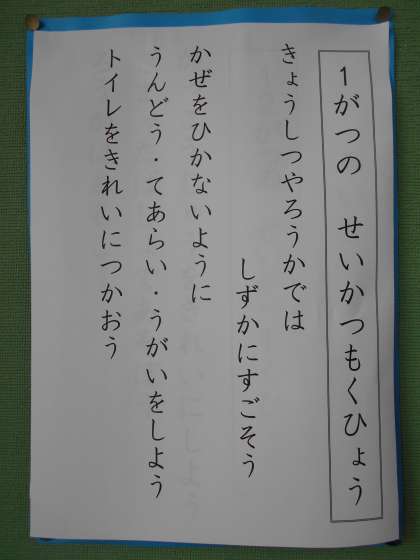 1がつの　せいかつもくひょう
きょうしつやろうかでは
しずかにすごそう
かぜをひかないように
うんどう・てあらい・うがいをしよう
トイレをきれいにつかおう